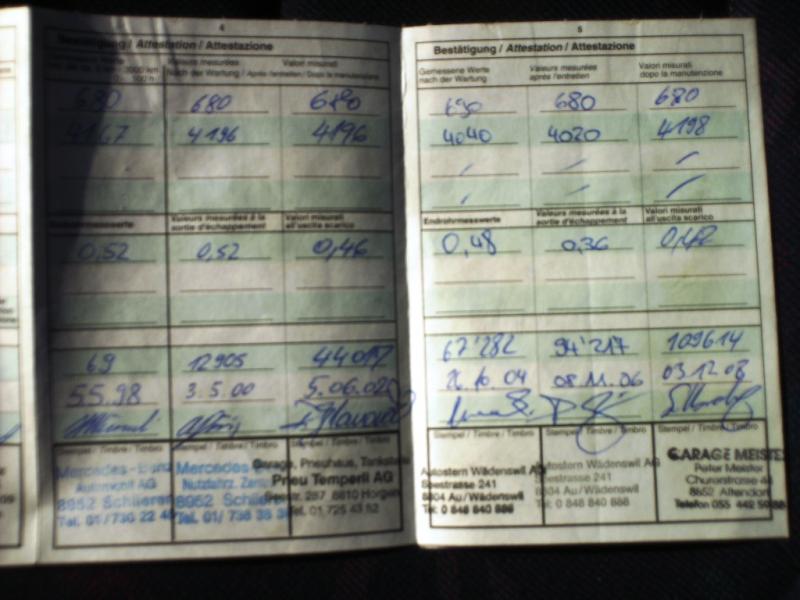 4
Bestätigung / Attestation / Attestazione
Valeurs mesurées Valori misurati
Nach der Wartung / Après l'entretien / Dopo la manutenzione
680 680 680
4167 4196 4196
Valeurs mesurées à la sortie d'échappement
Valori misurati all'uscita scarico
0,52 0,52 0,46
69 12905
5.5.98 3.5.00 5.06.02
Stempel / Timbre / Timbro Stempel / Timbre / Timbro
Mercedes-Benz
Automobil AG
8952 Schlieren
Tel. 01/
Mercedes
Nutzfahrz.
8952 Schlieren
Tel. 01/
Garage, Pneuhaus, Tankstelle
Pneu Temperli AG
Seestr. 287 8810 Horgen
Tel. 01 725 43 52
5
Bestätigung / Attestation / Attestazione
Gemessene Werte nach der Wartung
Valeurs mesurées après l'entretien
Valori misurati dopo la manutenzione
690 680 680
4040 4020 4198
Endrohrmesswerte
Valeurs mesurées à la sortie d'échappement
Valori misurati all'uscita scarico
0,48 0,36
67'282 94'217 109614
26.10.04 08.11.06 03.12.08
Stempel / Timbre / Timbro Stempel / Timbre / Timbro Stempel / Timbre / Timbro
Autostern Wädenswil AG
Seestrasse 241
8804 Au/Wädenswil
Tel. 0 848 840 888
Autostern Wädenswil AG
Seestrasse 241
8804 Au/Wädenswil
Tel. 0 848 840 888
GARAGE MEISTER
Peter Meister
Churerstrasse
8852 Altendorf
Telefon 055 442